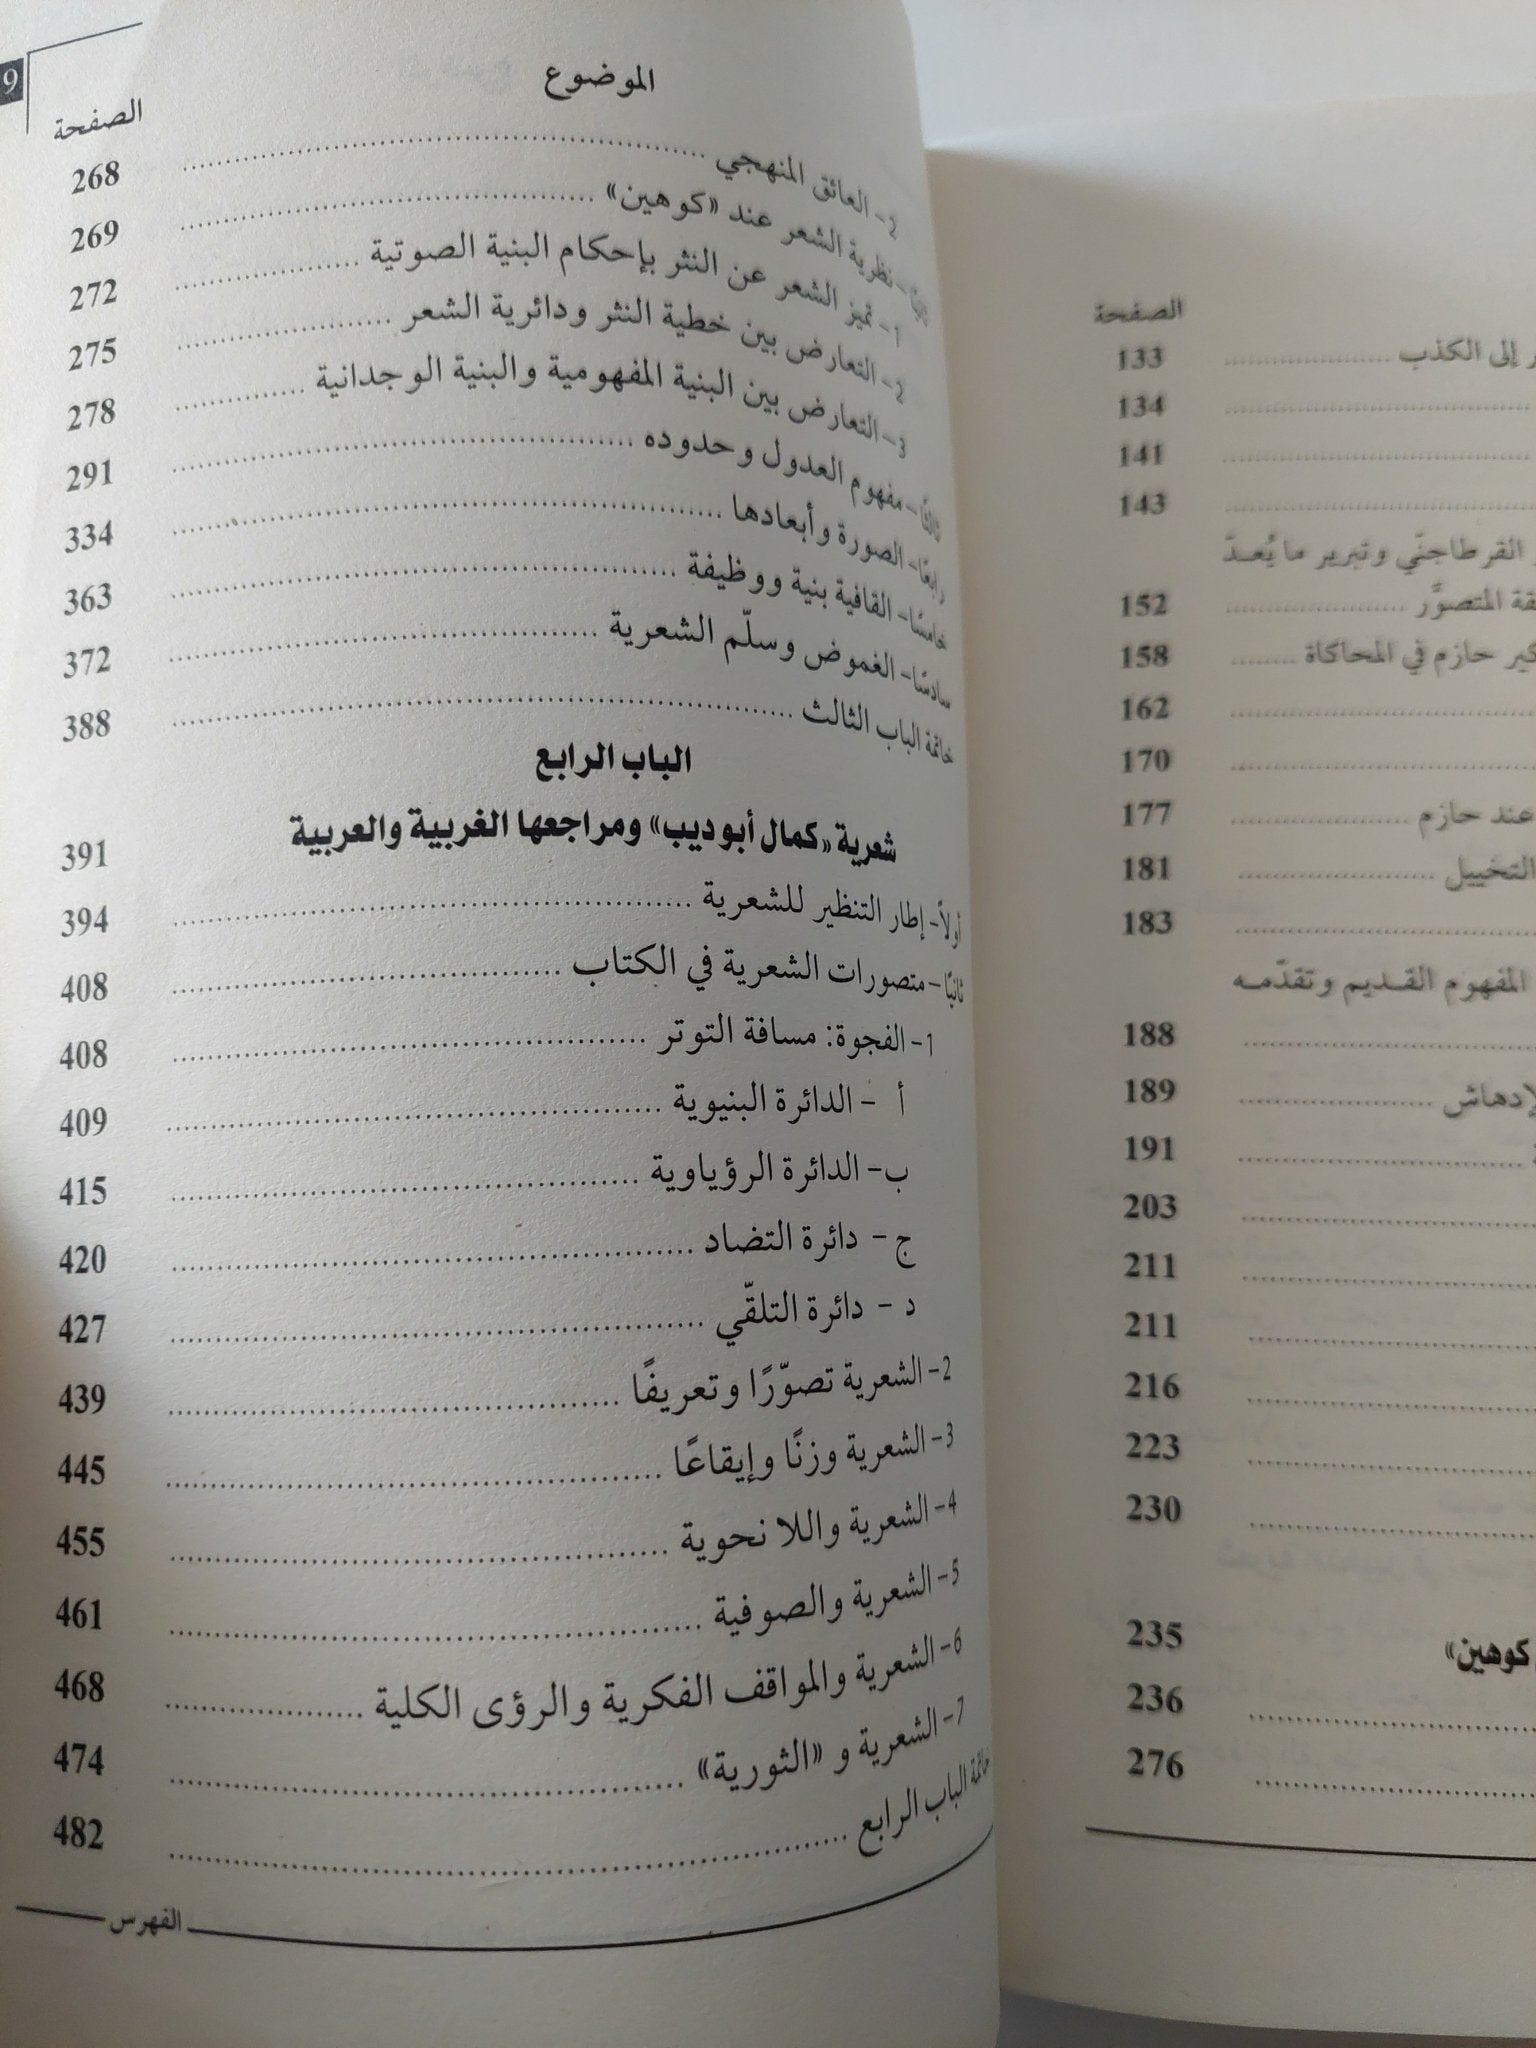 9
الموضوع
الصفحة
2- العائق المنهجي ........ 268
ثانيًا- نظرية الشعر عند «كوهين» ........ 269
1- تميز الشعر عن النثر بإحكام البنية الصوتية ........ 272
2- التعارض بين خطية النثر ودائرية الشعر ........ 275
3- التعارض بين البنية المفهومية والبنية الوجدانية ........ 278
ثالثًا- مفهوم العدول وحدوده ........ 291
رابعًا- الصورة وأبعادها ........ 334
خامسًا- القافية بنية ووظيفة ........ 363
سادسًا- الغموض وسلّم الشعرية ........ 372
خاتمة الباب الثالث ........ 388
الباب الرابع
شعرية «كمال أبو ديب» ومراجعها الغربية والعربية 391
أولاً- إطار التنظير للشعرية ........ 394
ثانيًا- متصورات الشعرية في الكتاب ........ 408
1- الفجوة: مسافة التوتر ........ 408
أ - الدائرة البنيوية ........ 409
ب- الدائرة الرؤياوية ........ 415
ج- دائرة التضاد ........ 420
د - دائرة التلقّي ........ 427
2- الشعرية تصوّرًا وتعريفًا ........ 439
3- الشعرية وزنًا وإيقاعًا ........ 445
4- الشعرية واللا نحوية ........ 455
5- الشعرية والصوفية ........ 461
6- الشعرية والمواقف الفكرية والرؤى الكلية ........ 468
7- الشعرية و «الثورية» ........ 474
خاتمة الباب الرابع ........ 482
الفهرس
الصفحة
إلى الكذب ........ 133
134
141
143
القرطاجنّي وتبرير ما يُعدّ
المتصوَّر ........ 152
حازم في المحاكاة ........ 158
162
170
عند حازم ........ 177
التخييل ........ 181
183
المفهوم القديم وتقدّمه
188
189
191
203
211
211
216
223
230
كوهين» 235
236
276